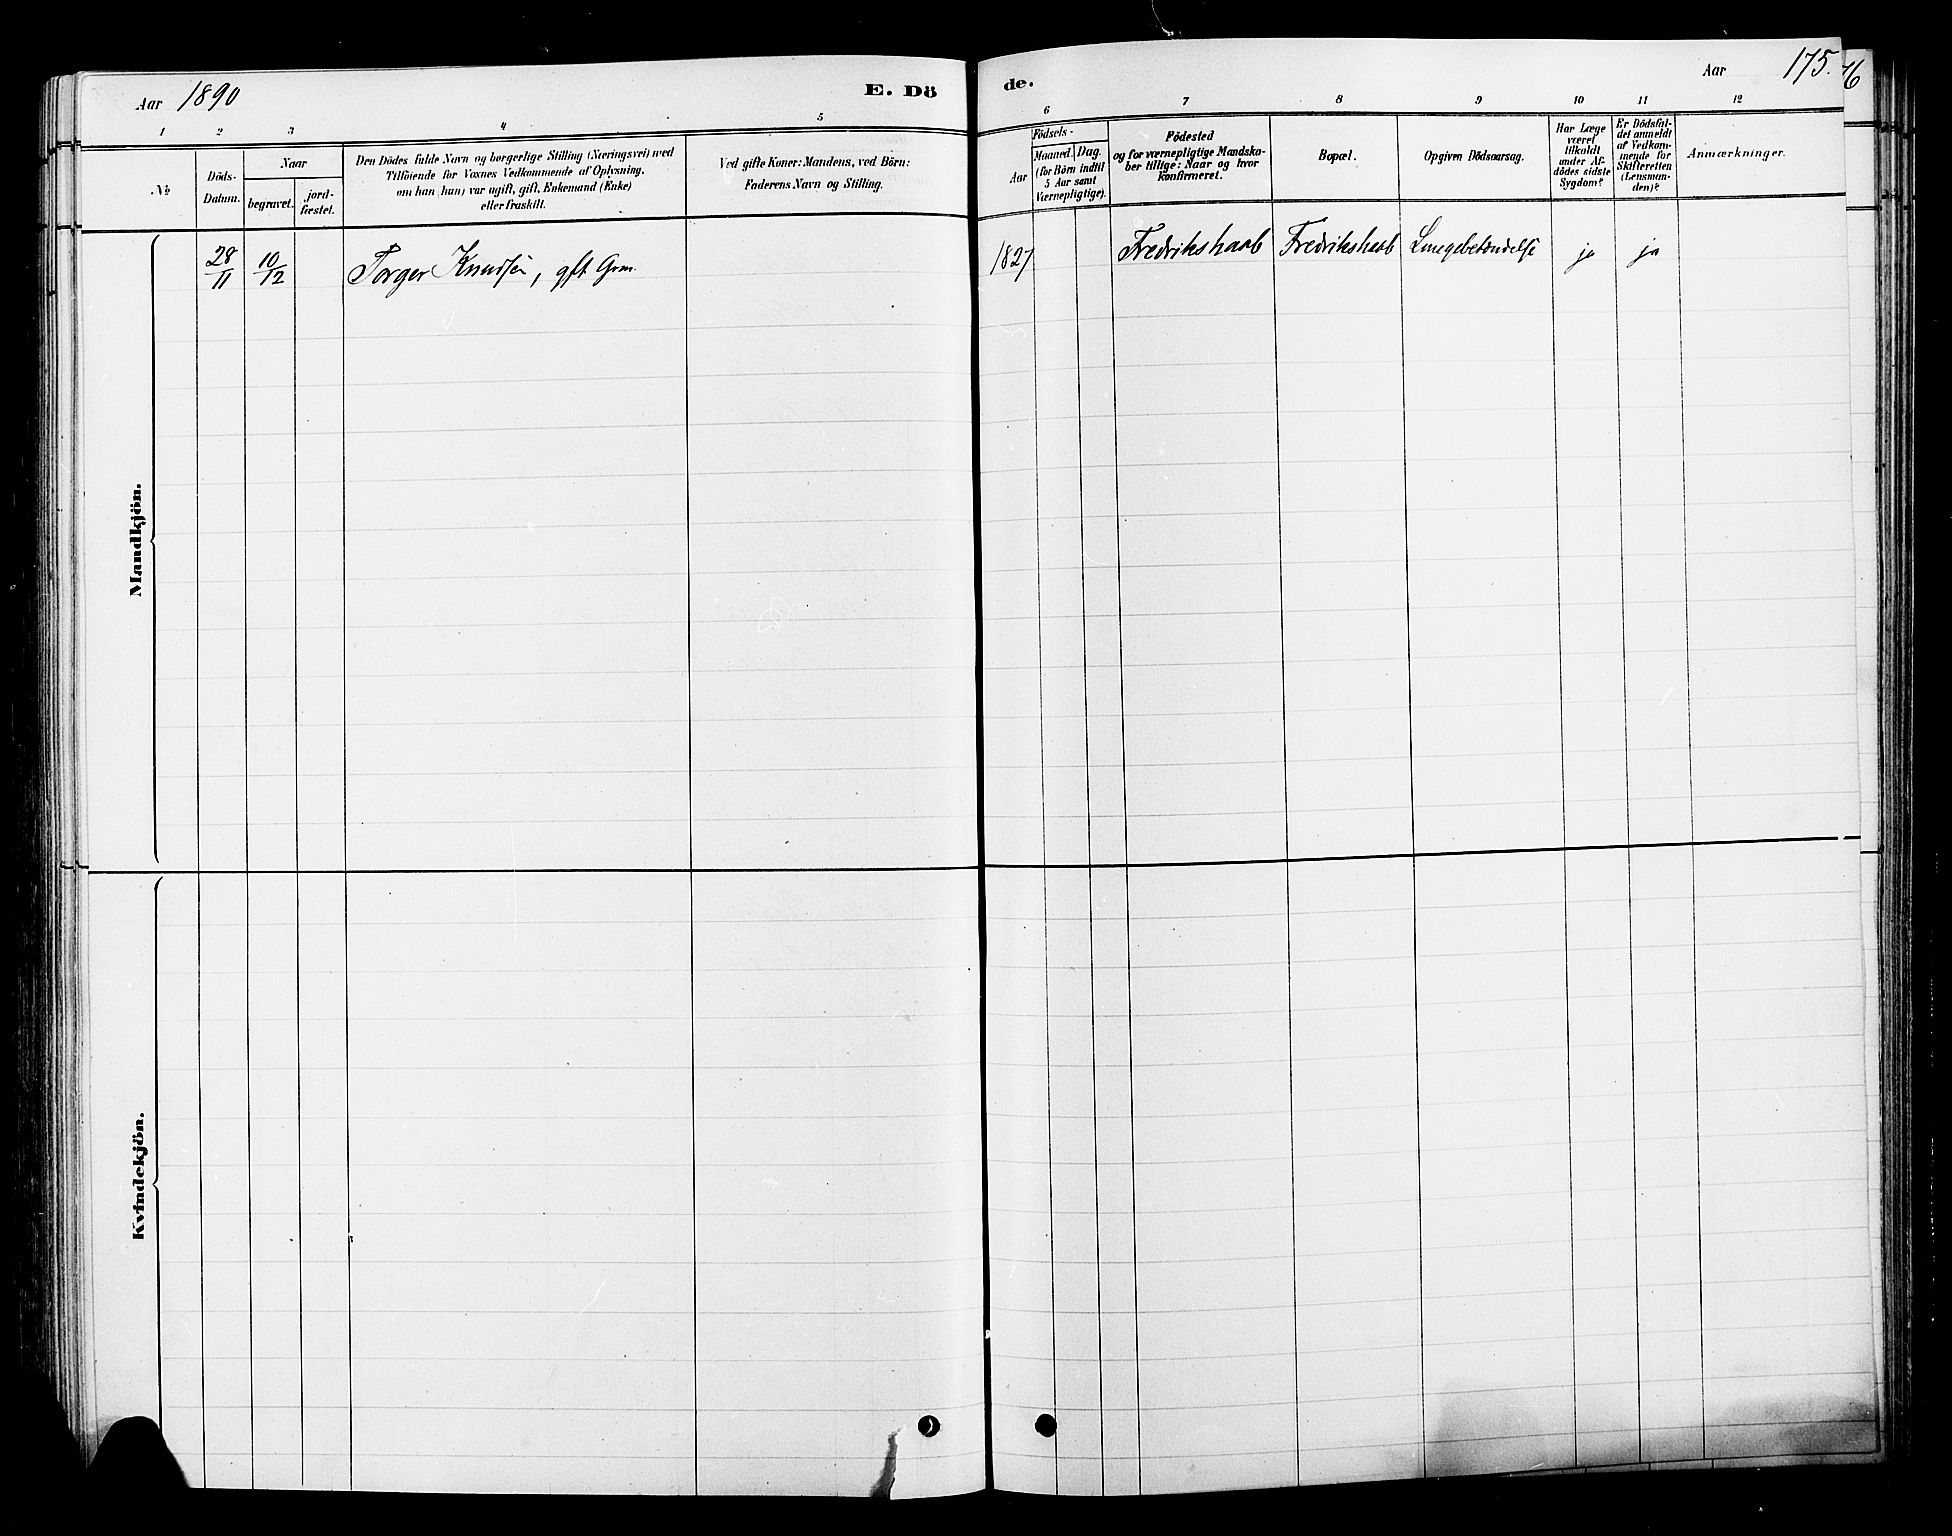 Aar 1890
E. Dö
de.
Aar 175.
76
1 2 3 4 5 6 7 8 9 10 11 12
No
Döds-
Datum.
Naar
begravet.
jord-
fæstet.
Den Dödes fulde Navn og borgerlige Stilling (Næringsvei) med
Tilföiende for Voxnes Vedkommende af Oplysning,
om han (hun) var ugift, gift, Enkemand (Enke)
eller fraskilt.
Ved gifte Koner: Mandens, ved Börn:
Faderens Navn og Stilling.
Födsels-
Aar
Maaned. Dag.
(for Börn indtil
5 Aar samt
Værnepligtige).
Födested
og for værnepligtige Mandska-
ber tillige: Naar og hvor
konfirmeret.
Bopæl.
Opgiven Dödsaarsag.
Har Læge
været
tilkaldt
under Af-
dödes sidste
Sygdom?
Er Dödsfal-
det anmeldt
af Vedkom-
mende for
Skifteretten
(Lensman-
den)?
Anmærkninger.
Mandkjön.
28/11 10/12 Torger Knudsen, gft Grm. 1827 Fredrikshaab Fredrikshaab Lungebetændelse ja ja
Kvindekjön.